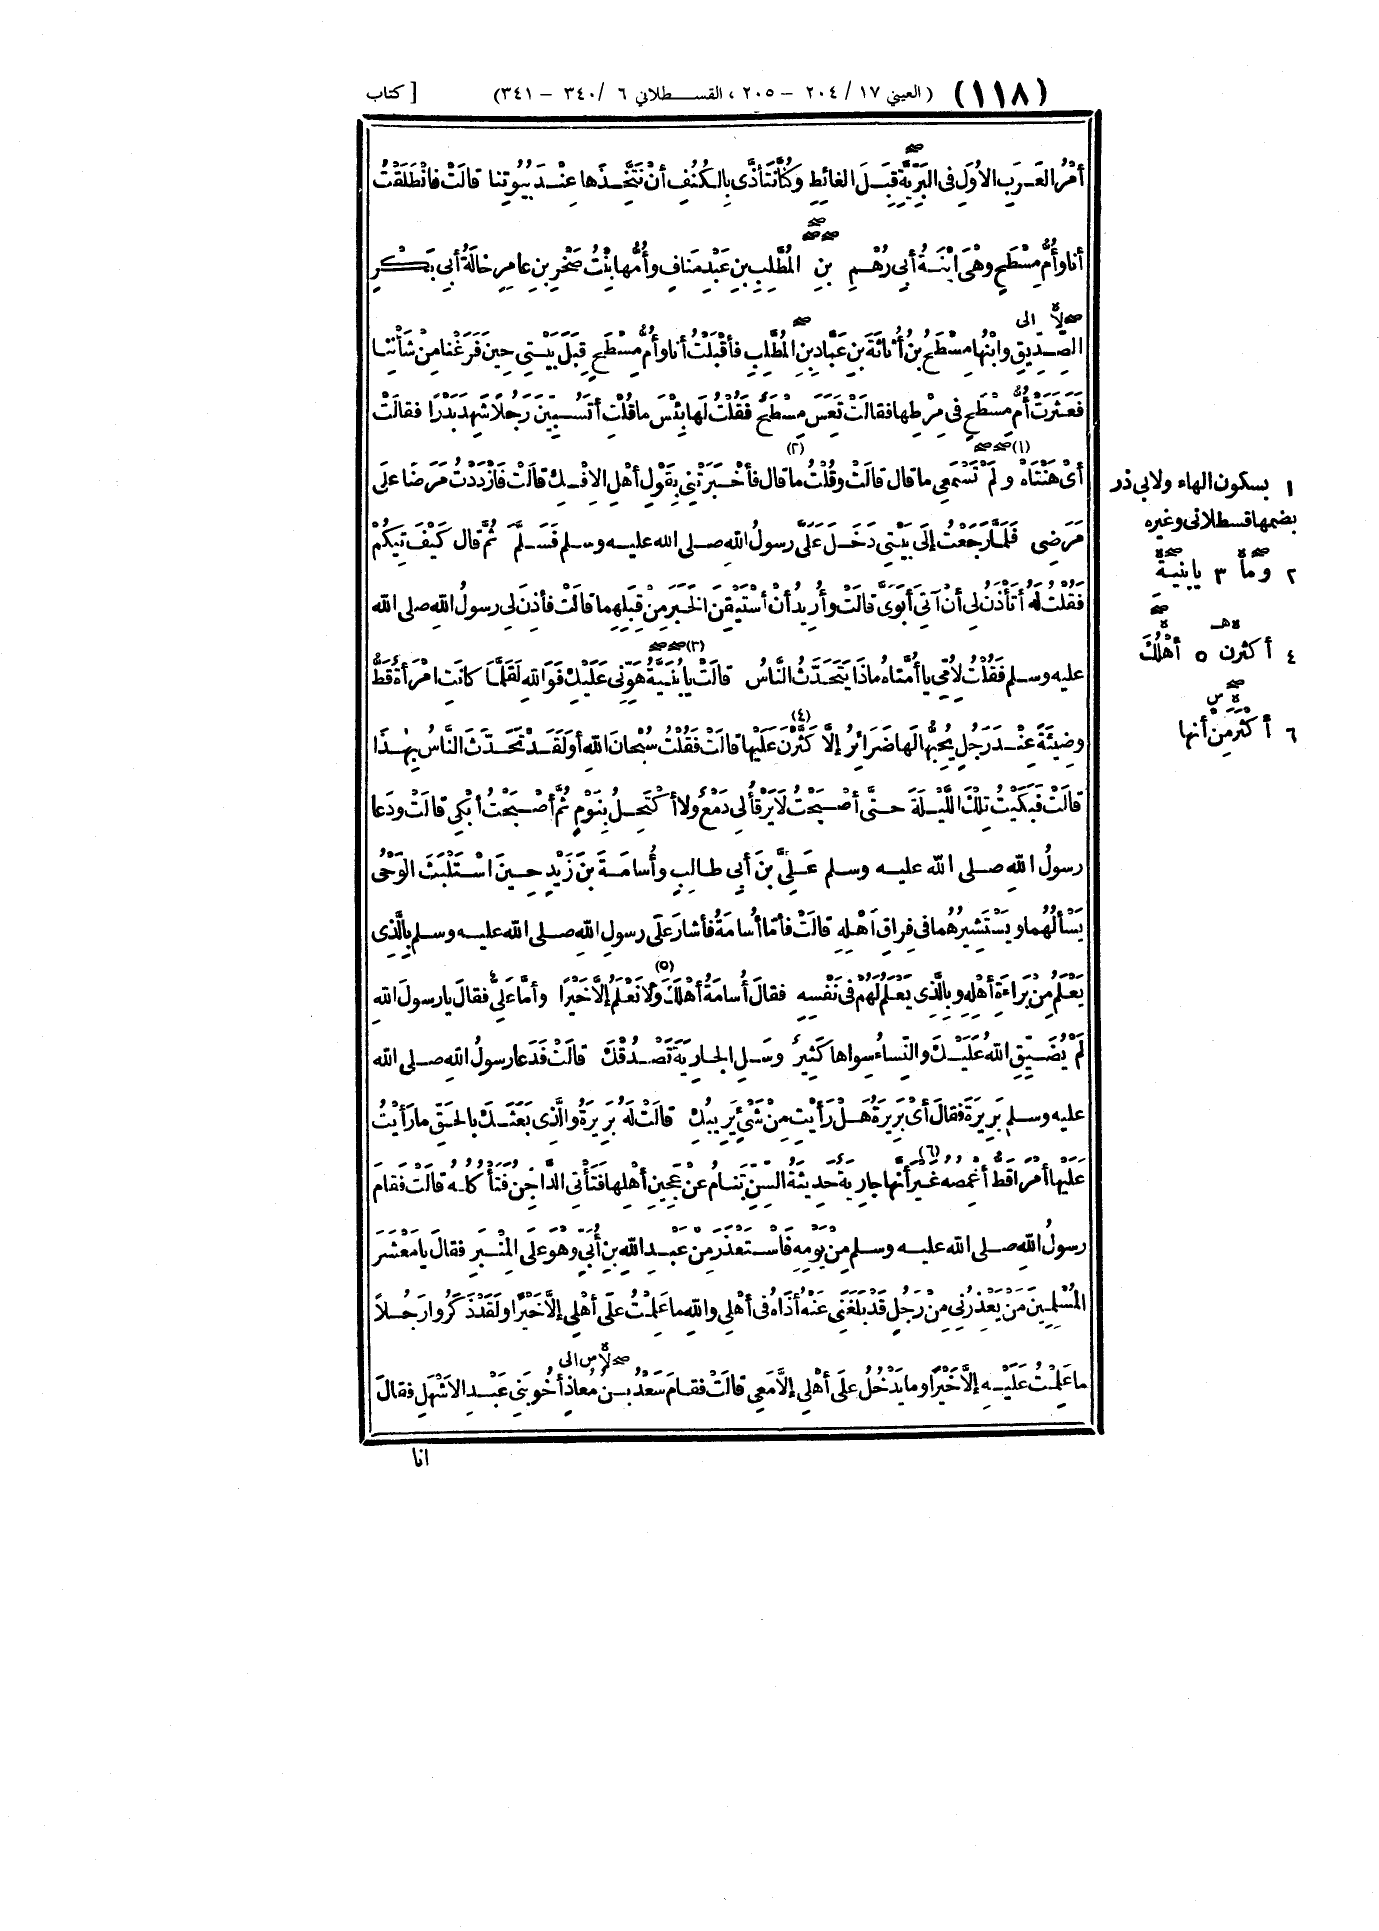 (١١٨) (العيني ١٧/ ٢٠٤ – ٢٠٥ ، القسطلاني ٦ /٣٤٠ – ٣٤١) [ كتاب
أَمْرُ العَرَبِ الأُوَلِ فى البَرِّيَّةِ قِبَلَ الغائِطِ وَكُنَّا نَتَأَذَّى بِالكُنُفِ أنْ نَتَّخِذَها عِنْدَ بُيُوتِنا قالَتْ فانْطَلَقْتُ
أنا وأُمُّ مِسْطَحٍ وهْىَ ابْنَةُ أبى رُهْمِ بنِ المُطَّلِبِ بنِ عَبْدِ مَنافٍ وأُمُّها بِنْتُ صَخْرِ بنِ عامِرٍ خالَةُ أبى بَكْرٍ
صح لا ه الى
الصِّدِّيقِ وابْنُها مِسْطَحُ بنُ أُثاثَةَ بنِ عَبَّادِ بنِ المُطَّلِبِ فأَقْبَلْتُ أنا وأُمُّ مِسْطَحٍ قِبَلَ بَيْتِى حِينَ فَرَغْنا مِنْ شَأْنِنا
فَعَثَرَتْ أُمُّ مِسْطَحٍ فى مِرْطِها فقالَتْ تَعَسَ مِسْطَحٌ فَقُلْتُ لَها بِئْسَ ما قُلْتِ أتَسُبِّينَ رَجُلاً شَهِدَ بَدْرًا فقالَتْ
أىْ هَنْتَاهْ (١) ولَمْ تَسْمَعِى ما قال قالَتْ وقُلْتُ (٢) ما قال فأخْبَرَتْنِى بِقَوْلِ أهْلِ الإفْكِ قالَتْ فَازْدَدْتُ مَرَضًا علَى
مَرَضِى فَلَمَّا رَجَعْتُ إلَى بَيْتِى دَخَلَ عَلَىَّ رسولُ اللهِ صلى الله عليه وسلم فَسَلَّمَ ثُمَّ قال كَيْفَ تِيكُمْ
فَقُلْتُ لَهُ أتَأْذَنُ لِى أنْ آتِىَ أبَوَىَّ قالَتْ وأُرِيدُ أنْ أسْتَيْقِنَ الخَبَرَ مِنْ قِبَلِهِما قالَتْ فأذِنَ لِى رسولُ اللهِ صلى الله
عليه وسلم فَقُلْتُ لِأُمِّى يا أُمَّتاهُ ماذا يَتَحَدَّثُ النَّاسُ قالَتْ يا بُنَيَّةُ (٣) هَوِّنِى عَلَيْكِ فَوَاللهِ لَقَلَّمَا كانَتِ امْرَأَةٌ قَطُّ
وَضِيئَةً عِنْدَ رَجُلٍ يُحِبُّها لَها ضَرَائِرُ إلاَّ كَثَّرْنَ (٤) عَلَيْها قالَتْ فَقُلْتُ سُبْحانَ اللهِ أوَلَقَدْ تَحَدَّثَ النَّاسُ بِهٰذَا
قالَتْ فَبَكَيْتُ تِلْكَ اللَّيْلَةَ حتَّى أصْبَحْتُ لا يَرْقَأُ لِى دَمْعٌ ولا أكْتَحِلُ بِنَوْمٍ ثُمَّ أصْبَحْتُ أبْكِى قالَتْ ودَعا
رسولُ اللهِ صلى الله عليه وسلم عَلِىَّ بنَ أبى طالِبٍ وأُسامَةَ بنَ زَيْدٍ حِينَ اسْتَلْبَثَ الوَحْىُ
يَسْأَلُهُما ويَسْتَشِيرُهُما فى فِراقِ أهْلِهِ قالَتْ فأمَّا أُسامَةُ فأشارَ عَلَى رسولِ اللهِ صلى الله عليه وسلم بِالَّذِى
يَعْلَمُ مِنْ بَرَاءَةِ أهْلِهِ وبِالَّذِى يَعْلَمُ لَهُمْ فى نَفْسِهِ فقالَ أُسامَةُ أهْلَكَ (٥) ولا نَعْلَمُ إلاَّ خَيْرًا وأمَّا عَلِىٌّ فقالَ يا رسولَ اللهِ
لَمْ يُضَيِّقِ اللهُ عَلَيْكَ والنِّساءُ سِواها كَثِيرٌ وسَلِ الجارِيَةَ تَصْدُقْكَ قالَتْ فَدَعا رسولُ اللهِ صلى الله
عليه وسلم بَرِيرَةَ فقالَ أىْ بَرِيرَةُ هَلْ رَأَيْتِ مِنْ شَىْءٍ يَرِيبُكِ قالَتْ لَهُ بَرِيرَةُ والَّذِى بَعَثَكَ بالحَقِّ ما رَأَيْتُ
عَلَيْها أمْرًا قَطُّ أغْمِصُهُ غَيْرَ أنَّها (٦) جارِيَةٌ حَدِيثَةُ السِّنِّ تَنامُ عنْ عَجِينِ أهْلِها فَتَأْتِى الدَّاجِنُ فَتَأْكُلُهُ قالَتْ فقامَ
رسولُ اللهِ صلى الله عليه وسلم مِنْ يَوْمِهِ فَاسْتَعْذَرَ مِنْ عَبْدِ اللهِ بنِ أُبَىٍّ وهْوَ عَلَى المِنْبَرِ فقالَ يا مَعْشَرَ
المُسْلِمِينَ مَنْ يَعْذِرُنِى مِنْ رَجُلٍ قَدْ بَلَغَنِى عَنْهُ أذَاهُ فى أهْلِى واللهِ ما عَلِمْتُ علَى أهْلِى إلاَّ خَيْرًا ولَقَدْ ذَكَرُوا رَجُلاً
صح لا ه س الى
ما عَلِمْتُ عَلَيْهِ إلاَّ خَيْرًا وما يَدْخُلُ علَى أهْلِى إلاَّ مَعِى قالَتْ فقامَ سَعْدُ بنُ مُعاذٍ أخُو بَنِى عَبْدِ الأشْهَلِ فقالَ
انا
١ بسكون الهاء ولابى ذر
بضمها قسطلانى وغيره
٢ وما ٣ يابنية
٤ أكثرن ٥ أهْلُكَ
٦ أكْثَرَ مِنْ أنها